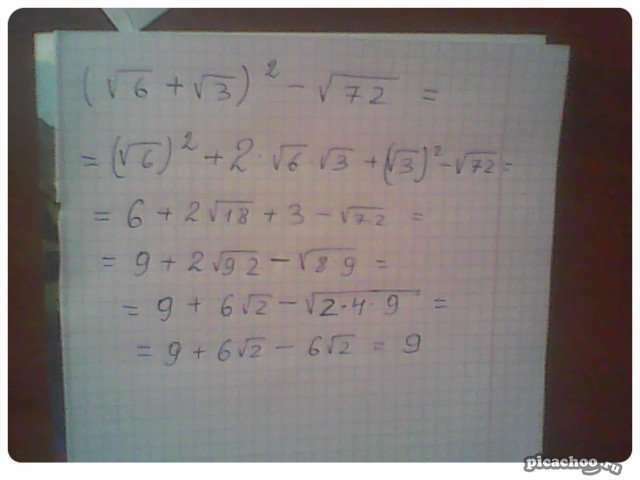 (√6 + √3)² - √72 =
= (√6)² + 2·√6·√3 + (√3)² - √72 =
= 6 + 2√18 + 3 - √72 =
= 9 + 2√9 2 - √8 9 =
= 9 + 6√2 - √2·4·9 =
= 9 + 6√2 - 6√2 = 9
picachoo.ru